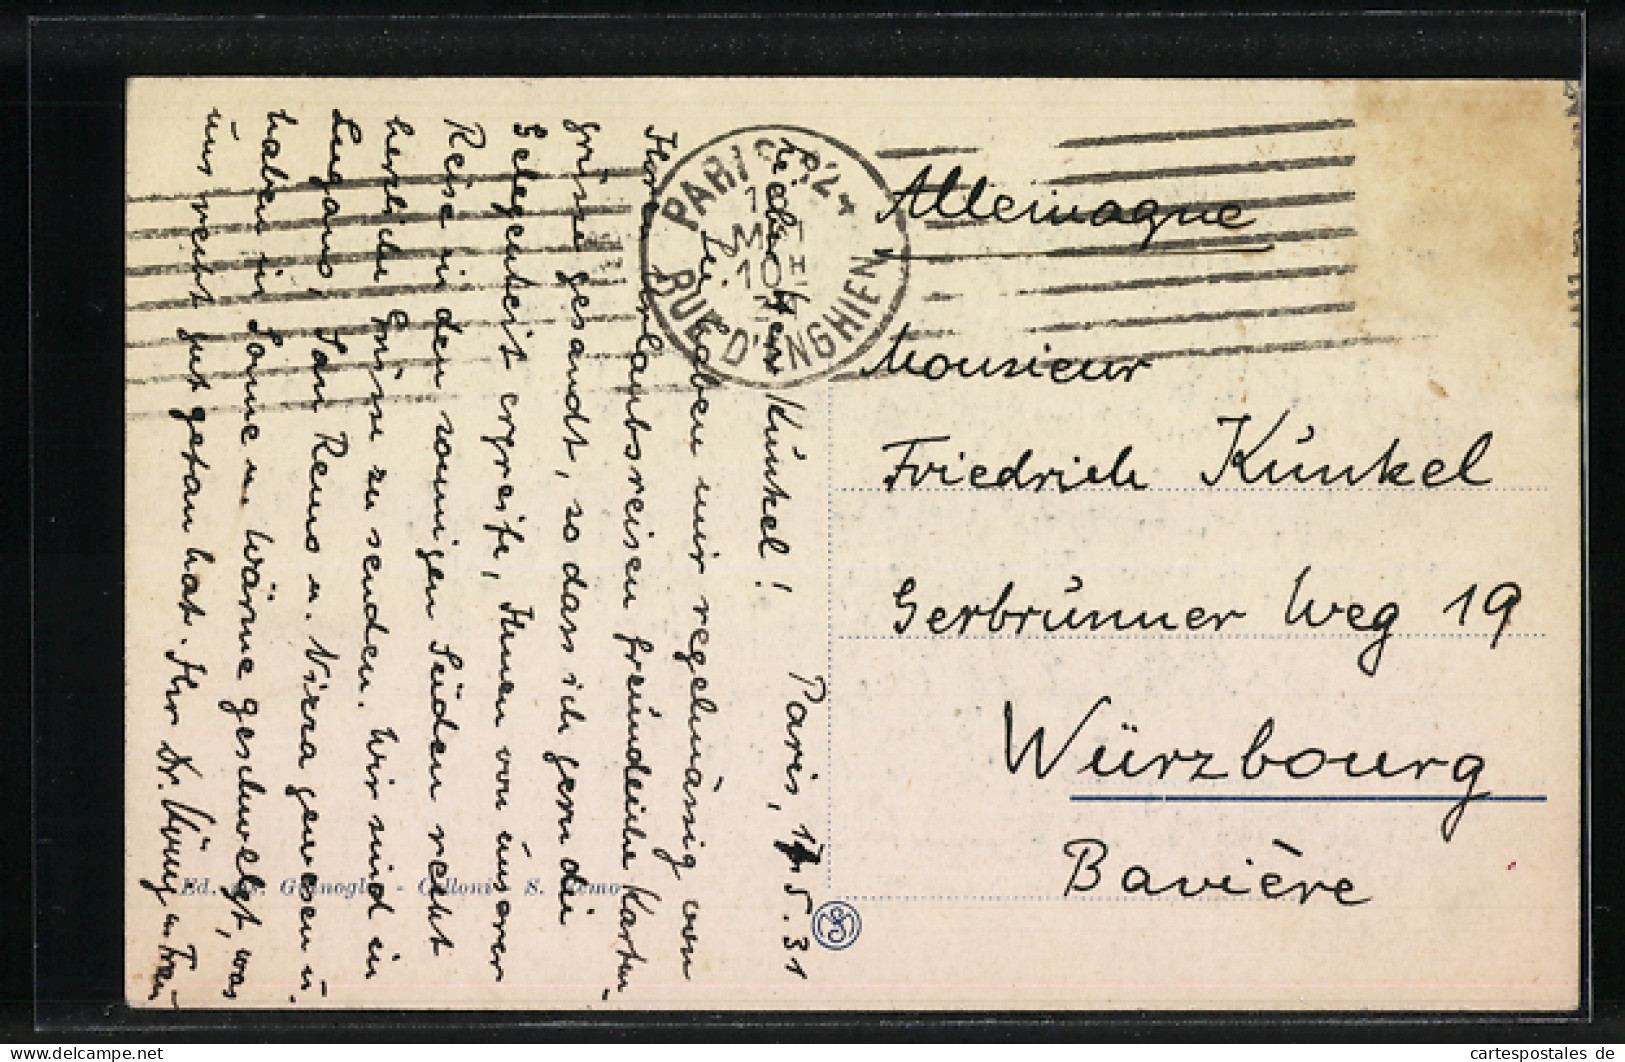 Paris, 1. 5. 31
Lieber Herr Künkel!
Sie haben mir regelmässig von
Ihren Urlaubsreisen freundliche Karten-
grüsse gesandt, so dass ich gern die
Gelegenheit ergreife, Ihnen von unserer
Reise in den sonnigen Süden recht
herzliche Grüsse zu senden. Wir sind in
Lugano, San Remo u. Nizza gewesen u.
haben in Sonne u. Wärme geschwelgt, was
uns recht gut getan hat. Ihr Dr.
PARIS
1
MAI
10H
RUE D'ENGHIEN
Allemagne
Monsieur
Friedrich Künkel
Gerbrunner Weg 19
Würzbourg
Bavière
S. Remo
www.cartespostales.de
cartespostales de